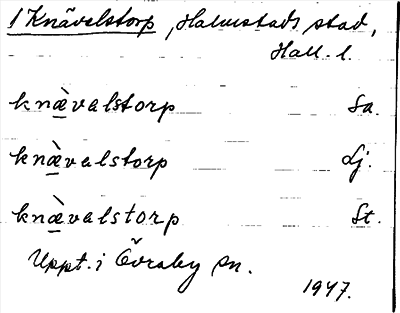 1 Knävelstorp, Halmstads stad,
Hall. l.
knæ̀valstorp Sa.
knæ̀valstorp Lj.
knæ̀valstorp St.
Uppt. i Övraby sn.
1947.